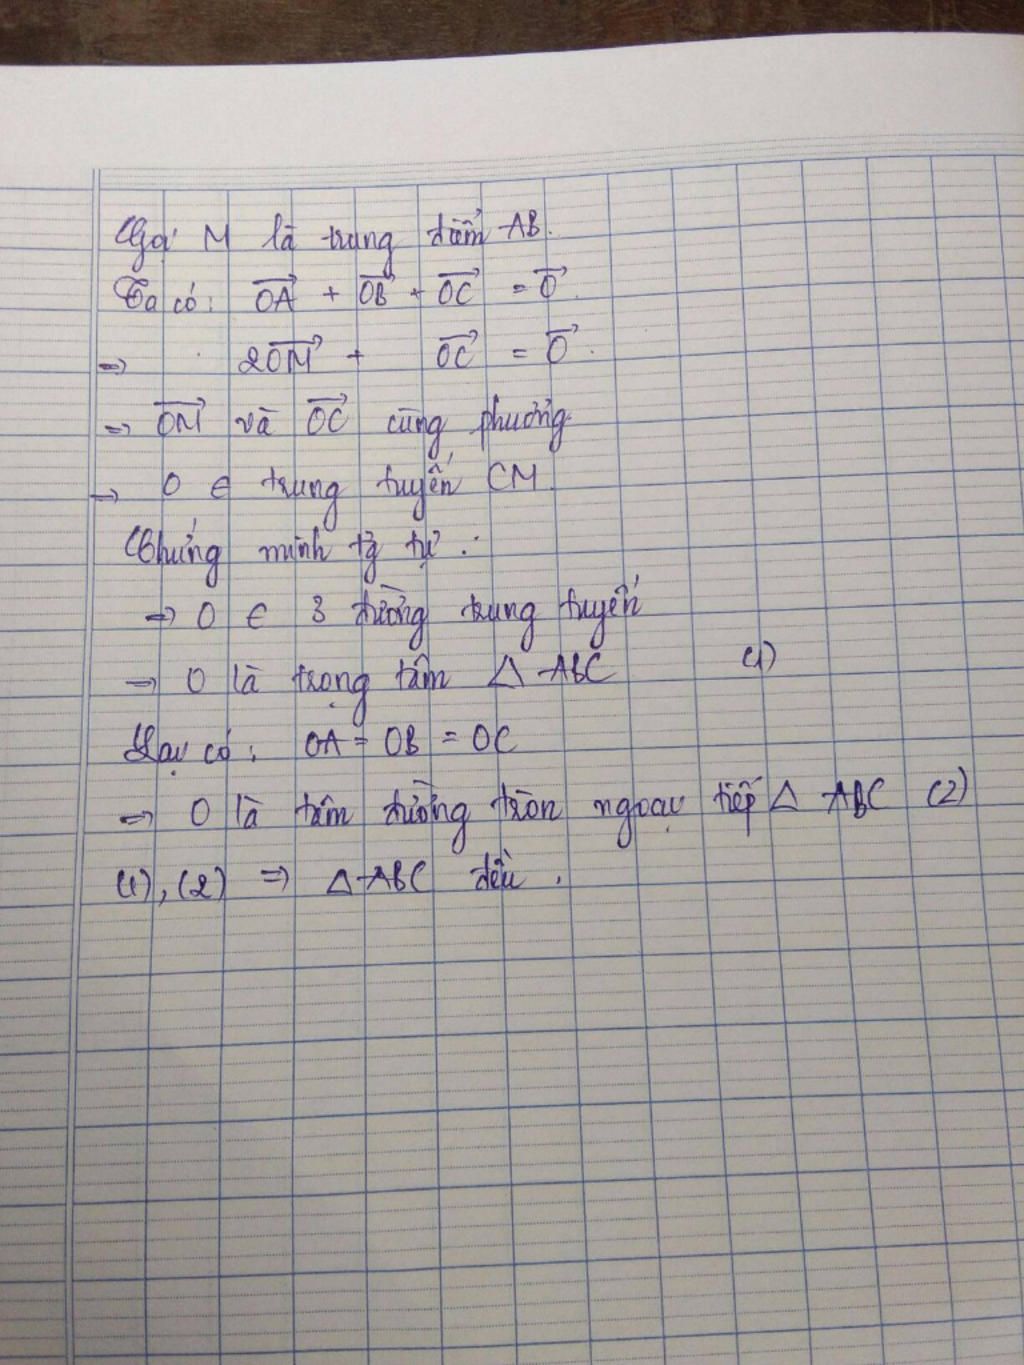 Gọi M là trung điểm AB.
Ta có: $\overrightarrow{OA} + \overrightarrow{OB} + \overrightarrow{OC} = \overrightarrow{O}$.
=> $2\overrightarrow{OM} + \overrightarrow{OC} = \overrightarrow{O}$.
=> $\overrightarrow{OM}$ và $\overrightarrow{OC}$ cùng phương
=> O ∈ trung tuyến CM.
Chứng minh tg tự :
=> O ∈ 3 đường trung tuyến
=> O là trọng tâm Δ ABC (1)
Lại có: OA = OB = OC
=> O là tâm đường tròn ngoại tiếp Δ ABC (2)
(1), (2) => Δ ABC đều.